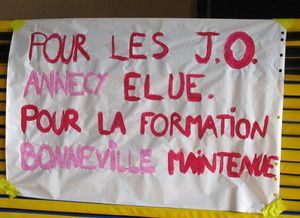 POUR LES J.O.
ANNECY ELUE.
POUR LA FORMATION
BONNEVILLE MAINTENUE